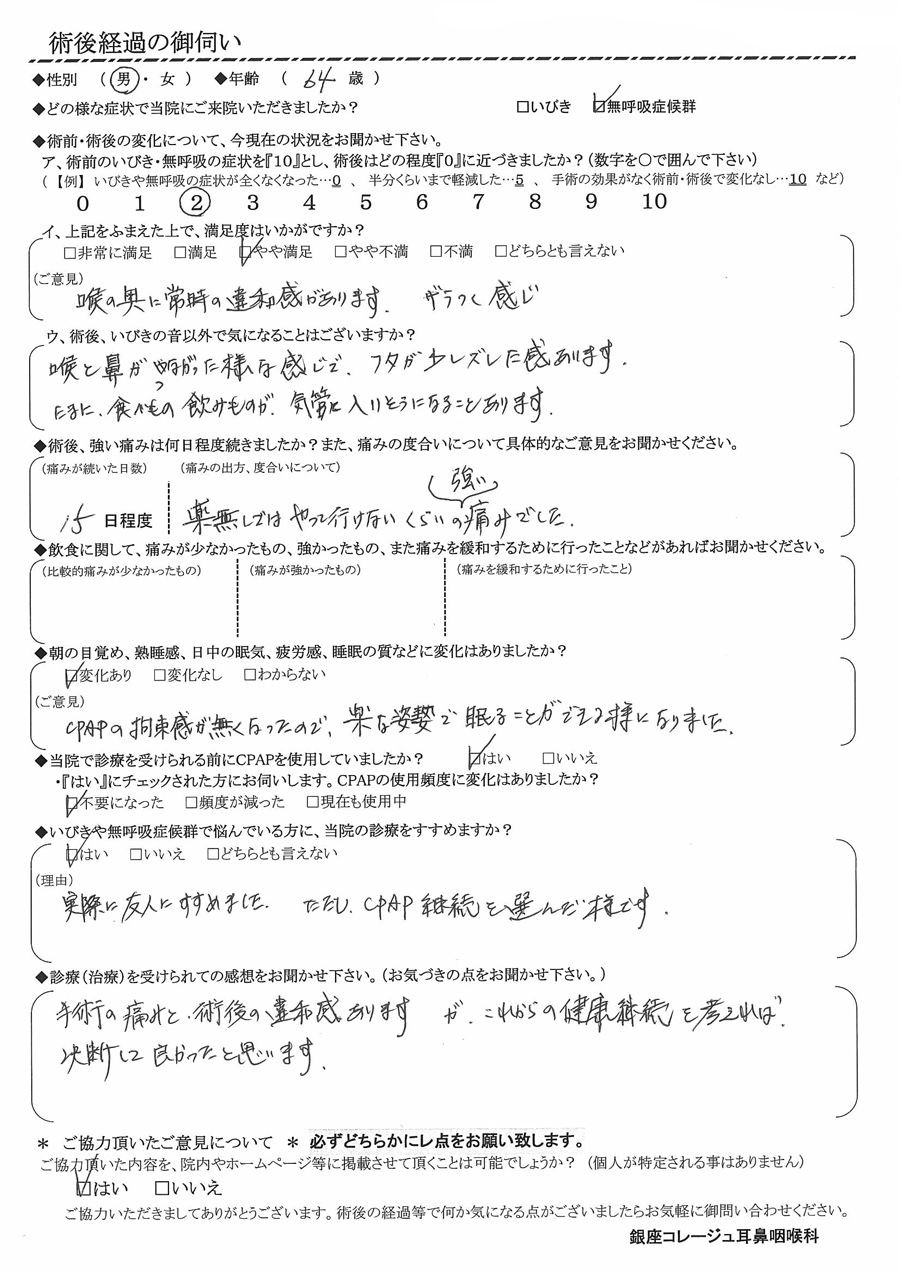 術後経過の御伺い
◆性別 （ 男 ・ 女 ） ◆年齢 （ 64 歳 ）
◆どの様な症状で当院にご来院いただきましたか？ □いびき ☑無呼吸症候群
◆術前・術後の変化について、今現在の状況をお聞かせ下さい。
ア、術前のいびき・無呼吸の症状を『10』とし、術後はどの程度『0』に近づきましたか？（数字を〇で囲んで下さい）
（【例】 いびきや無呼吸の症状が全くなくなった…0 、 半分くらいまで軽減した…5 、 手術の効果がなく術前・術後で変化なし…10 など）
0 1 2 3 4 5 6 7 8 9 10
イ、上記をふまえた上で、満足度はいかがですか？
□非常に満足 □満足 ☑やや満足 □やや不満 □不満 □どちらとも言えない
（ご意見）
喉の奥に常時の違和感があります. ザラつく感じ
ウ、術後、いびきの音以外で気になることはございますか？
喉と鼻がつながった様な感じで、フタが少しズレた感あります.
たまに、食べもの 飲みものが、気管に入りそうになることあります.
◆術後、強い痛みは何日程度続きましたか？また、痛みの度合いについて具体的なご意見をお聞かせください。
（痛みが続いた日数） （痛みの出方、度合いについて）
強い
15 日程度 薬無しではやって行けないくらいの痛みでした.
◆飲食に関して、痛みが少なかったもの、強かったもの、また痛みを緩和するために行ったことなどがあればお聞かせください。
（比較的痛みが少なかったもの） （痛みが強かったもの） （痛みを緩和するために行ったこと）
◆朝の目覚め、熟睡感、日中の眠気、疲労感、睡眠の質などに変化はありましたか？
☑変化あり □変化なし □わからない
（ご意見）
CPAPの拘束感が無くなったので、楽な姿勢で眠ることができる様になりました.
◆当院で診療を受けられる前にCPAPを使用していましたか？ ☑はい □いいえ
・『はい』にチェックされた方にお伺いします。CPAPの使用頻度に変化はありましたか？
☑不要になった □頻度が減った □現在も使用中
◆いびきや無呼吸症候群で悩んでいる方に、当院の診療をすすめますか？
☑はい □いいえ □どちらとも言えない
（理由）
実際に友人にすすめました. ただし、CPAP継続を選んだ様です.
◆診療（治療）を受けられての感想をお聞かせ下さい。（お気づきの点をお聞かせ下さい。）
手術の痛みと、術後の違和感あります が、これからの健康継続を考えれば、
決断して良かったと思います.
＊ ご協力頂いたご意見について ＊ 必ずどちらかにレ点をお願い致します。
ご協力頂いた内容を、院内やホームページ等に掲載させて頂くことは可能でしょうか？ （個人が特定される事はありません）
☑はい □いいえ
ご協力いただきましてありがとうございます。術後の経過等で何か気になる点がございましたらお気軽に御問い合わせください。
銀座コレージュ耳鼻咽喉科